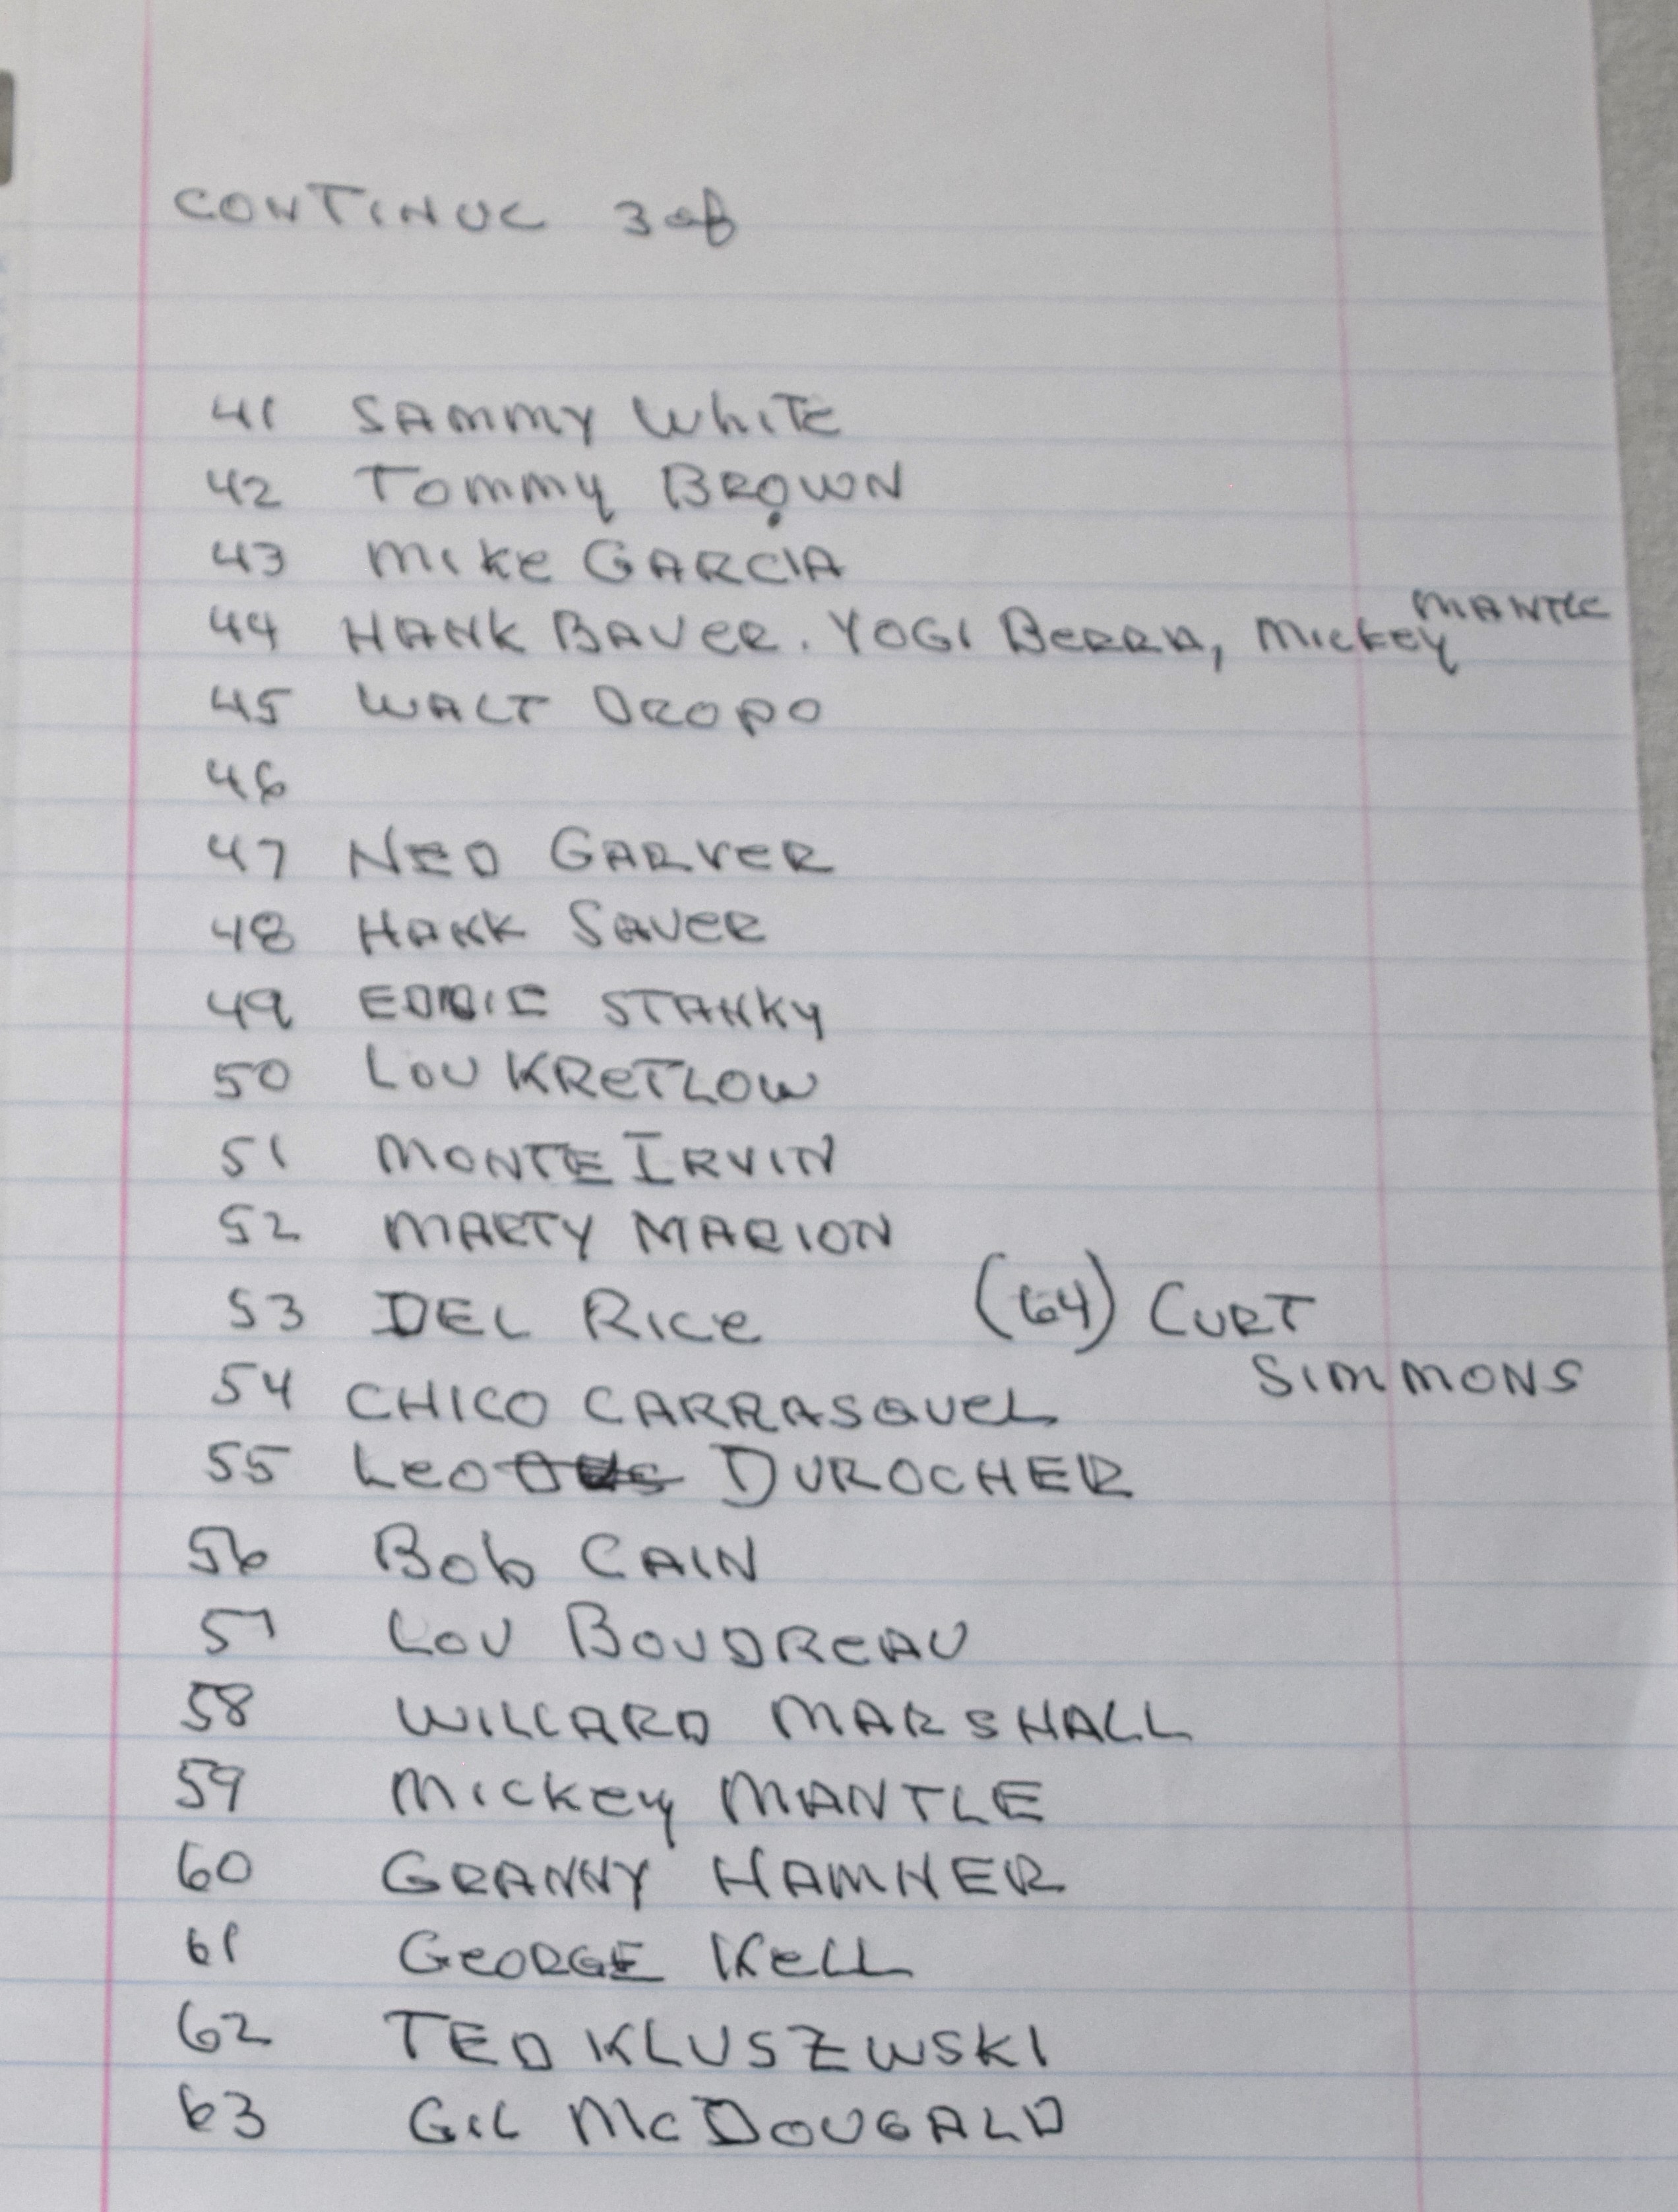 CONTINUE 3 of
41 SAMMY WHITE
42 TOMMY BROWN
43 MIKE GARCIA
44 HANK BAUER. YOGI BERRA, MICKEY MANTLE
45 WALT DROPO
46
47 NED GARVER
48 HANK SAUER
49 EDDIE STANKY
50 LOU KRETLOW
51 MONTE IRVIN
52 MARTY MARION
53 DEL RICE (64) CURT
SIMMONS
54 CHICO CARRASQUEL
55 LEO DUROCHER
56 BOB CAIN
57 LOU BOUDREAU
58 WILLARD MARSHALL
59 MICKEY MANTLE
60 GRANNY HAMNER
61 GEORGE KELL
62 TED KLUSZWSKI
63 GIL McDOUGALD